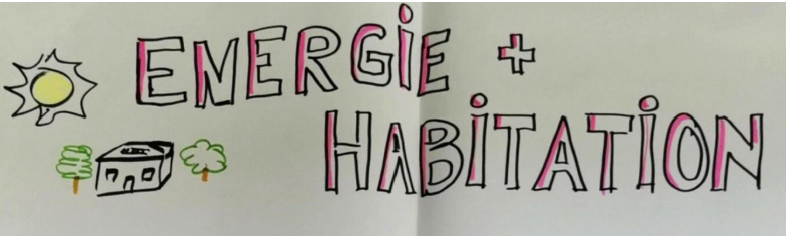 ENERGiE +
HABiTATiON